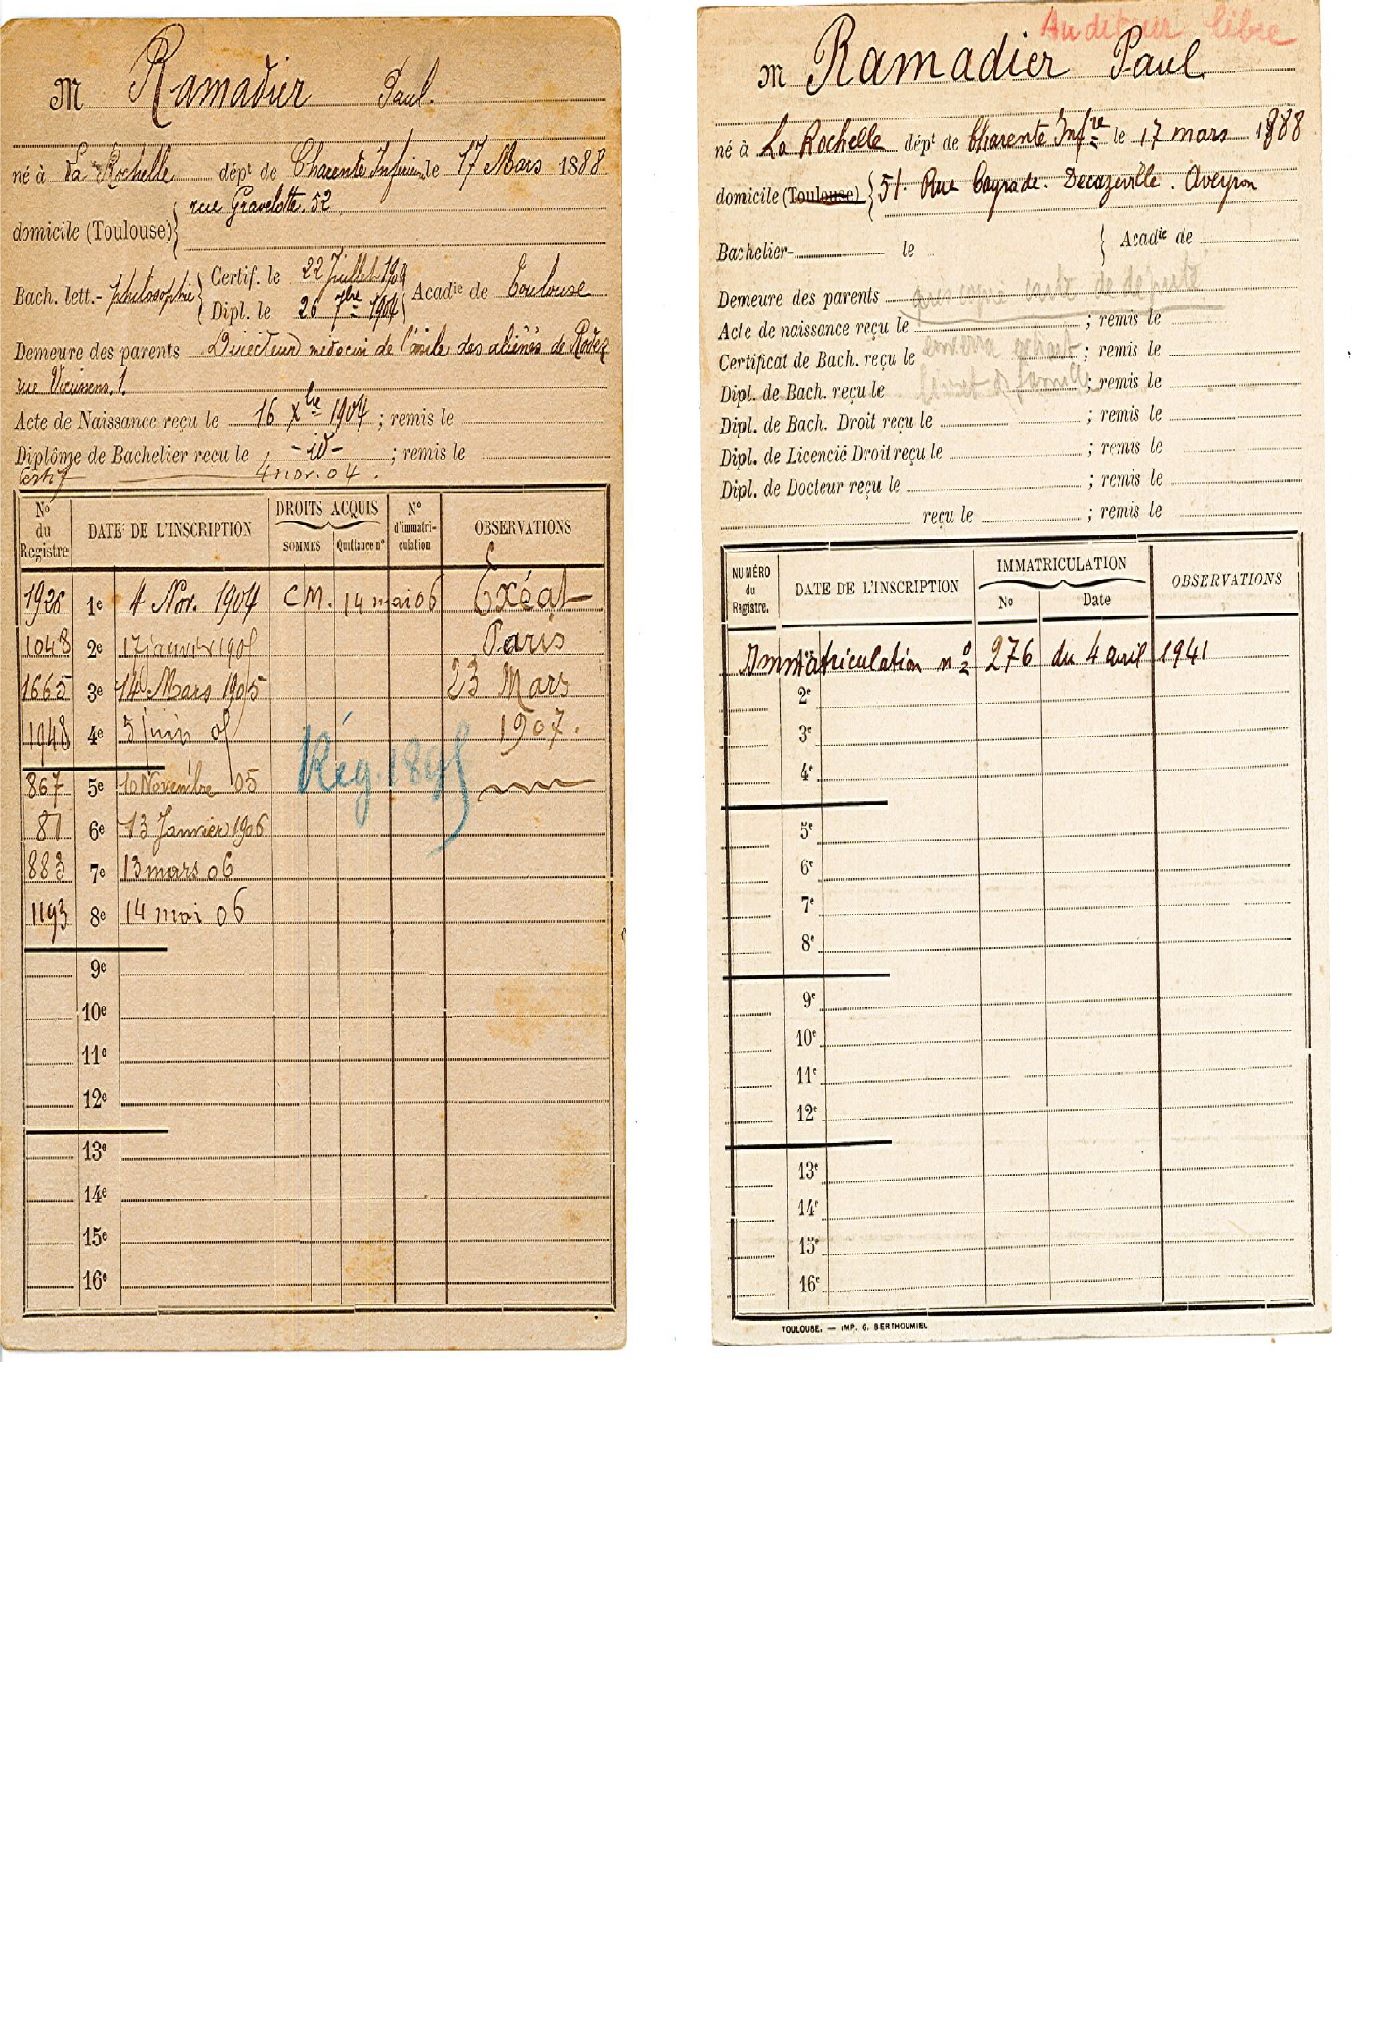 M Ramadier Paul.
né à La Rochelle dépt de Charente Inférieure le 17 Mars 1888
rue Gravelotte. 52
domicile (Toulouse)
Bach. lett.- philosophie Certif. le 22 Juillet 190
Dipl. le 26 7bre 1904 Acadie de Toulouse
Demeure des parents Directeur médecin de l'asile des aliénés de Rodez
rue Vieussens. 1.
Acte de Naissance reçu le 16 Xbre 1904 ; remis le
Diplôme de Bachelier reçu le -id- ; remis le
Certif 4 nov. 04.
No du Registre DATE DE L'INSCRIPTION DROITS ACQUIS SOMMES Quittance no No d'immatri- culation OBSERVATIONS
1926 1e 4 Nov. 1904 C M. 14 mai 06 Exéat
1048 2e 17 janvier 1905 Paris
1665 3e 14 Mars 1905 23 Mars
1948 4e 5 juin 05 1907.
Rég. 1895
867 5e 10 Novembre 05
81 6e 13 Janvier 1906
883 7e 13 mars 06
1193 8e 14 mai 06
9e
10e
11e
12e
13e
14e
15e
16e
Auditeur libre
M Ramadier Paul
né à La Rochelle dépt de Charente Infre le 17 mars 1888
domicile (Toulouse) 51 Rue Cayrade. Decazeville. Aveyron
Bachelier- le Acadie de
Demeure des parents carte de député
Acte de naissance reçu le ; remis le
Certificat de Bach. reçu le ; remis le
Dipl. de Bach. reçu le livret de famille ; remis le
Dipl. de Bach. Droit reçu le ; remis le
Dipl. de Licencié Droit reçu le ; remis le
Dipl. de Docteur reçu le ; remis le
reçu le ; remis le
NUMÉRO du Registre. DATE DE L'INSCRIPTION IMMATRICULATION No Date OBSERVATIONS
Immatriculation no 276 du 4 avril 1941
2e
3e
4e
5e
6e
7e
8e
9e
10e
11e
12e
13e
14e
15e
16e
TOULOUSE. — IMP. G. BERTHOUMIEL